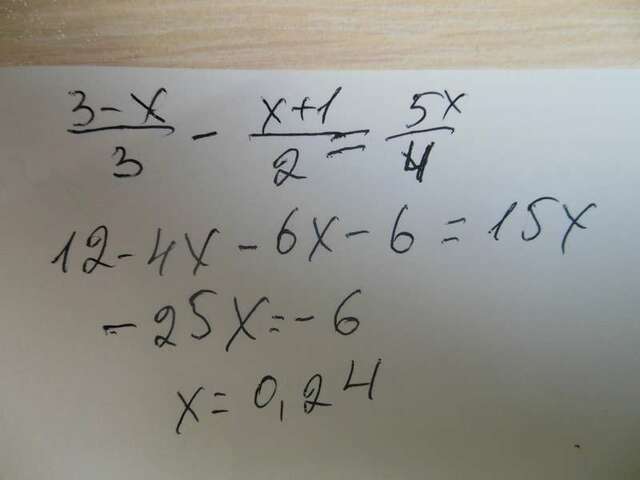 3-x/3 - x+1/2 = 5x/4
12-4x-6x-6=15x
-25x=-6
x=0,24